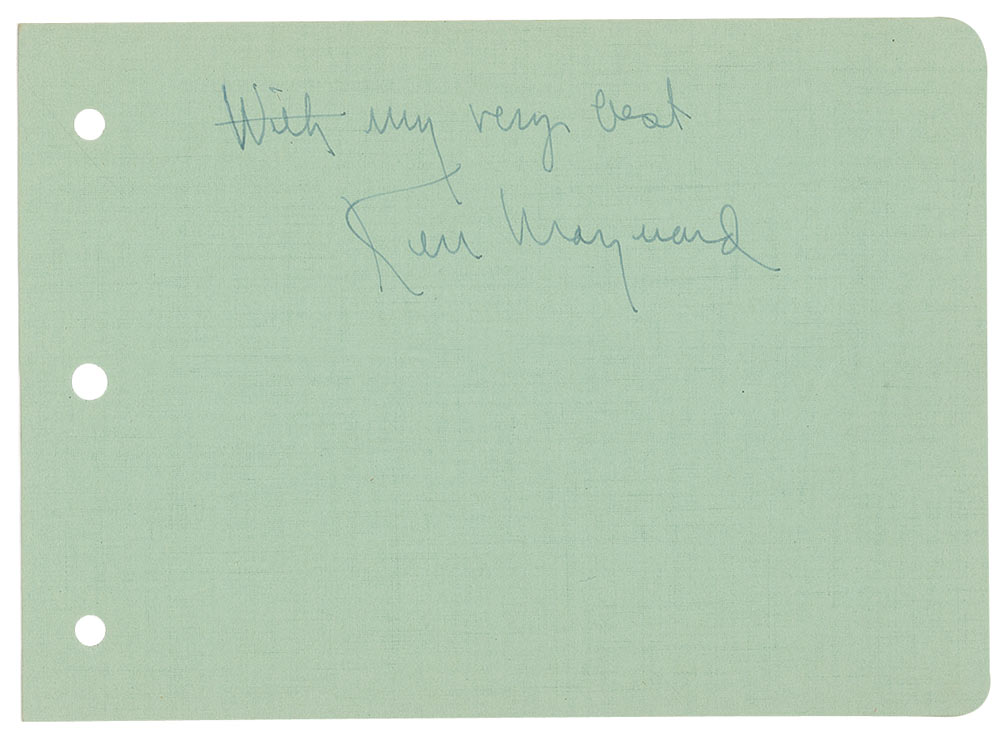 With my very best
Ken Maynard